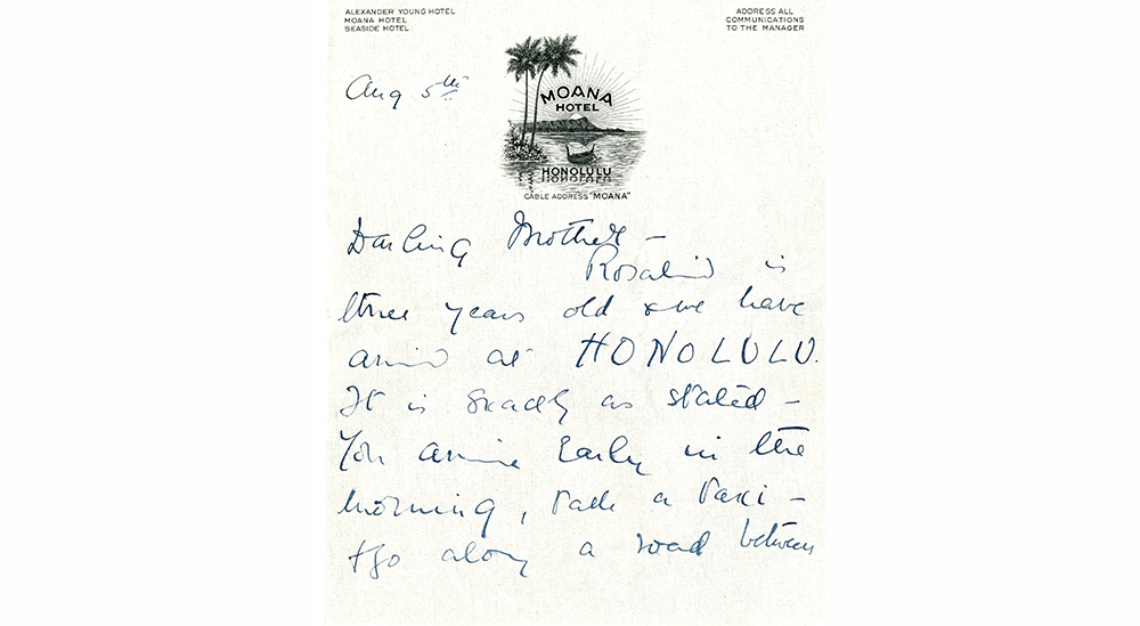 ALEXANDER YOUNG HOTEL
MOANA HOTEL
SEASIDE HOTEL
ADDRESS ALL
COMMUNICATIONS
TO THE MANAGER
Aug 5th
MOANA
HOTEL
HONOLULU
CABLE ADDRESS "MOANA"
Darling Mother –
Rosalind is
three years old & we have
arrived at HONOLULU.
It is exactly as stated –
You arrive early in the
morning, take a taxi –
& go along a road between